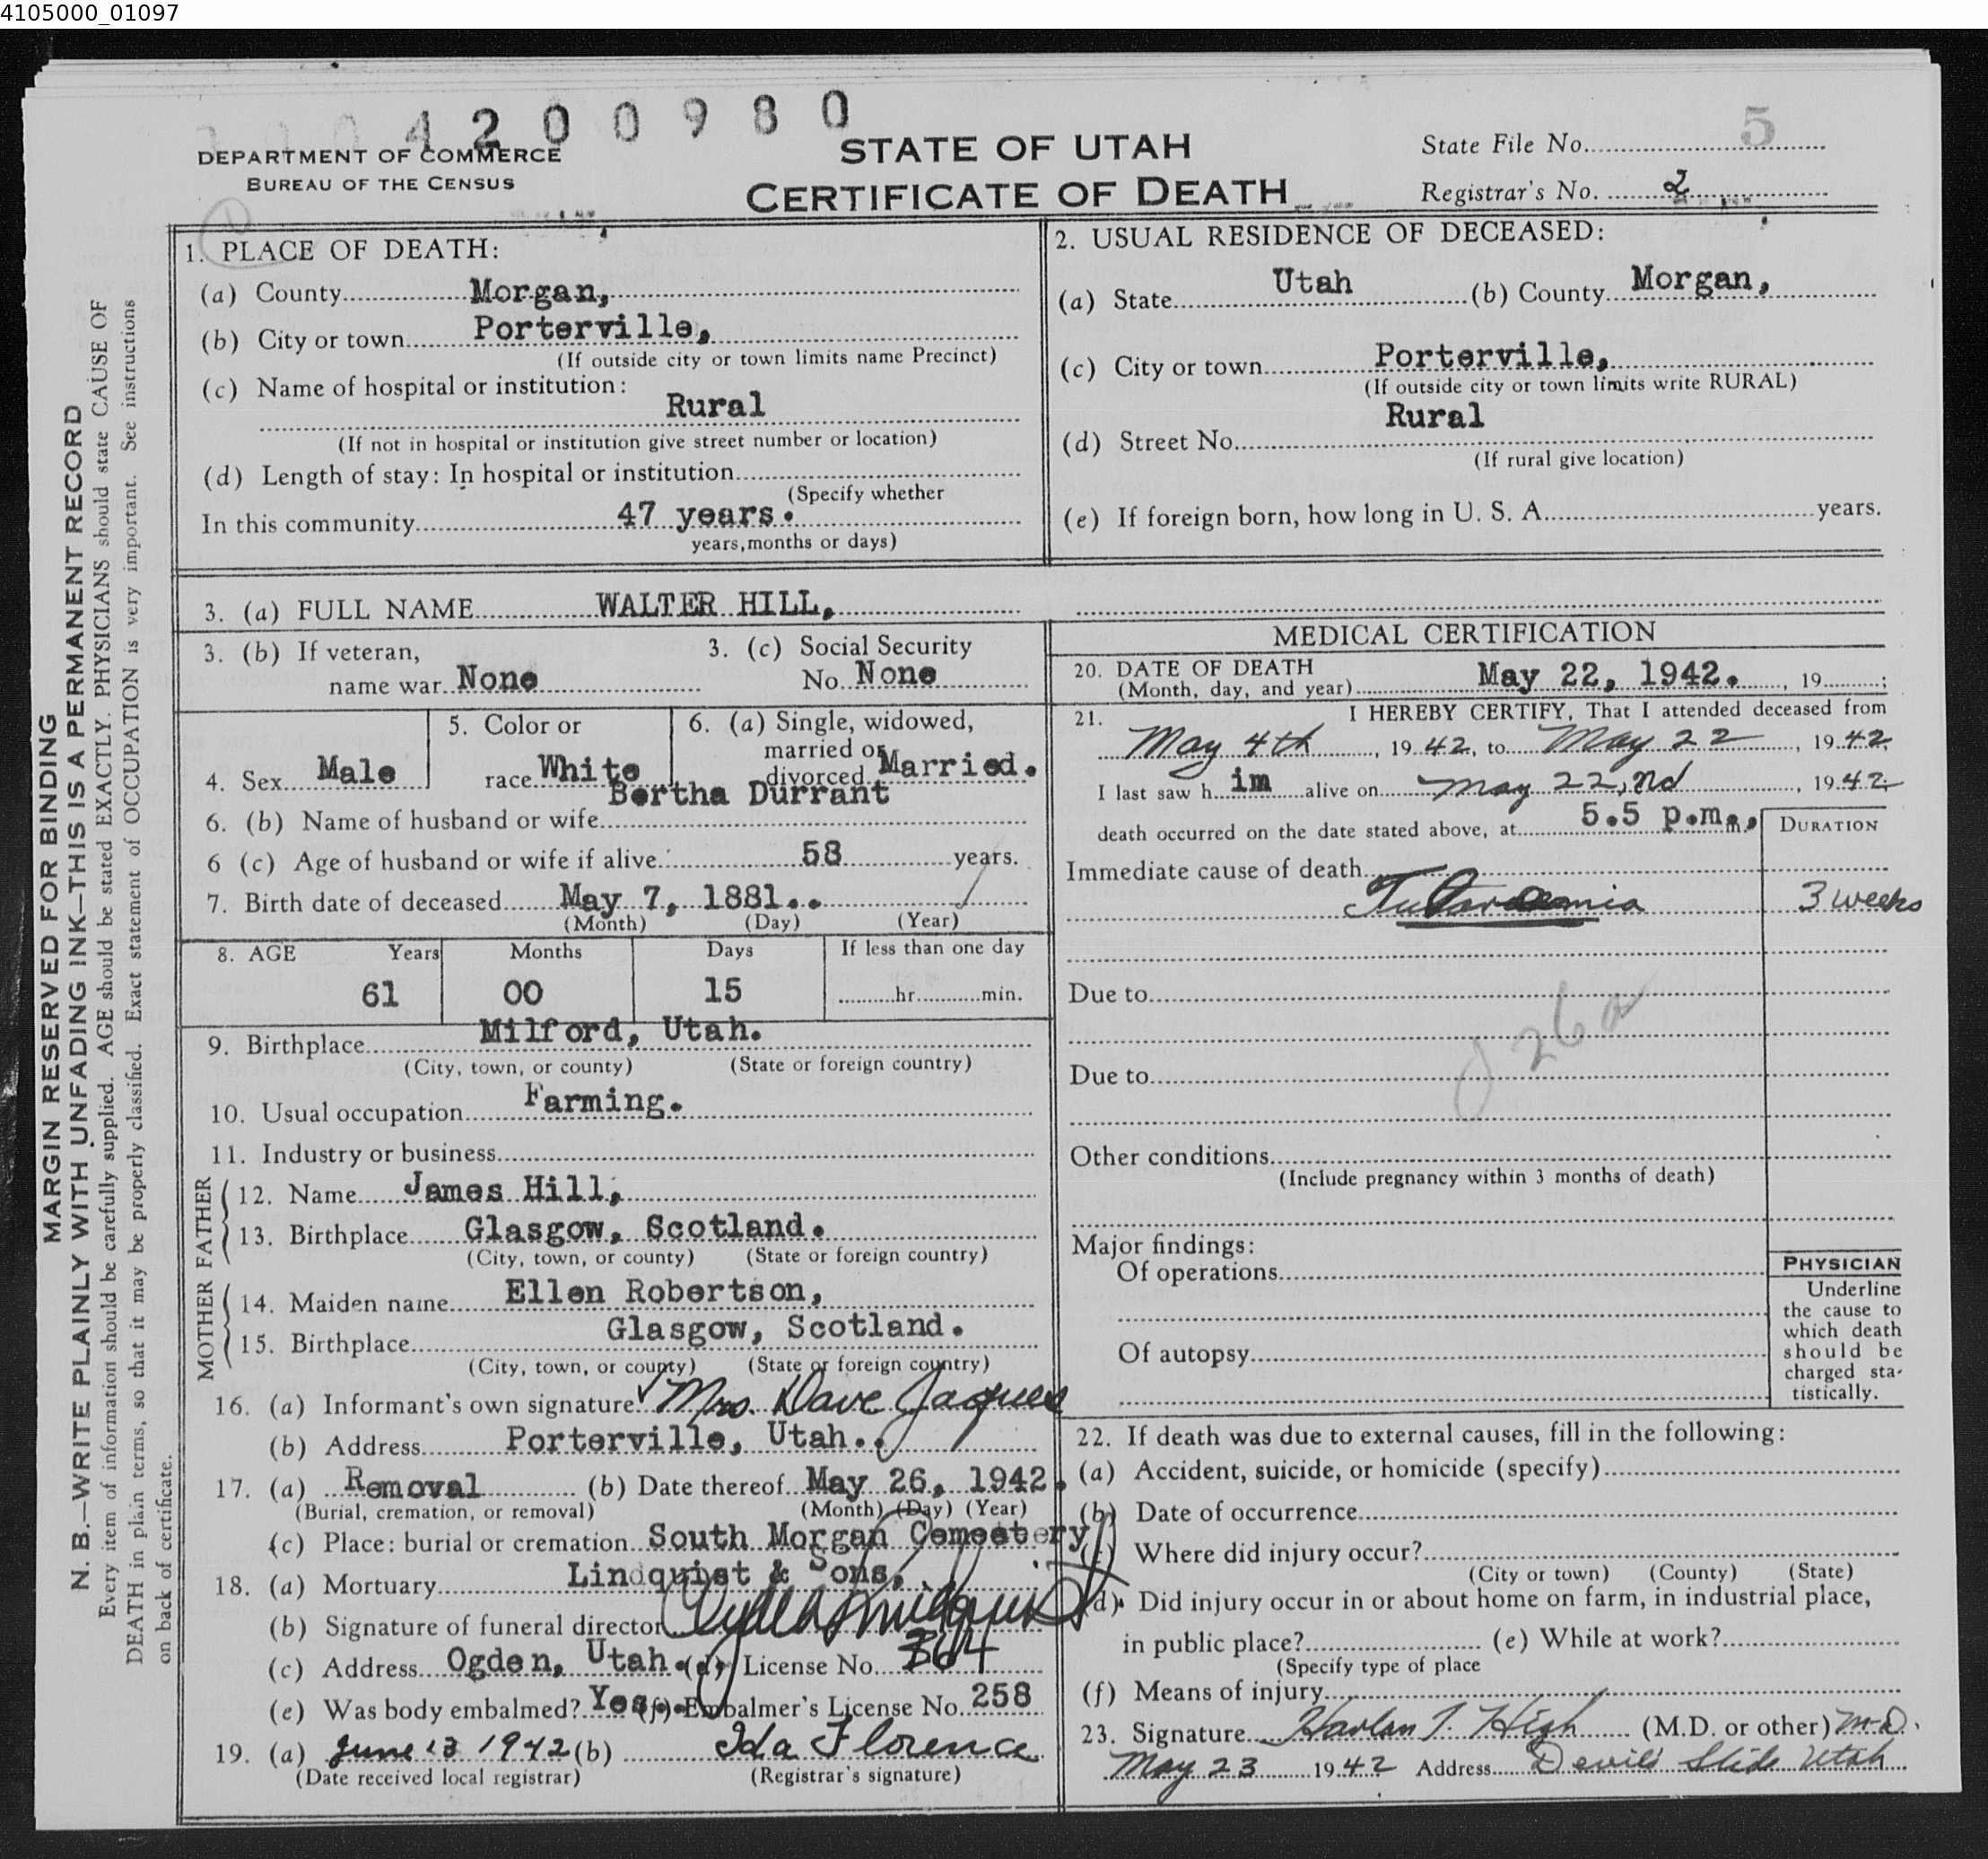 4105000_01097
4 2 0 0 9 8 0
DEPARTMENT OF COMMERCE
BUREAU OF THE CENSUS
STATE OF UTAH
CERTIFICATE OF DEATH
State File No. 5
Registrar's No. 2
MARGIN RESERVED FOR BINDING
N. B.—WRITE PLAINLY WITH UNFADING INK—THIS IS A PERMANENT RECORD
Every item of information should be carefully supplied. AGE should be stated EXACTLY. PHYSICIANS should state CAUSE OF
DEATH in plain terms, so that it may be properly classified. Exact statement of OCCUPATION is very important. See instructions
on back of certificate.
1. PLACE OF DEATH:
(a) County Morgan,
(b) City or town Porterville,
(If outside city or town limits name Precinct)
(c) Name of hospital or institution:
Rural
(If not in hospital or institution give street number or location)
(d) Length of stay: In hospital or institution
(Specify whether
In this community 47 years.
years, months or days)
2. USUAL RESIDENCE OF DECEASED:
(a) State Utah (b) County Morgan,
(c) City or town Porterville,
(If outside city or town limits write RURAL)
Rural
(d) Street No.
(If rural give location)
(e) If foreign born, how long in U. S. A. years.
3. (a) FULL NAME WALTER HILL,
3. (b) If veteran,
name war None
3. (c) Social Security
No. None
4. Sex Male
5. Color or
race White
6. (a) Single, widowed,
married or
divorced Married.
Bertha Durrant
6. (b) Name of husband or wife
6 (c) Age of husband or wife if alive 58 years.
7. Birth date of deceased May 7, 1881..
(Month) (Day) (Year)
8. AGE Years Months Days If less than one day
61 00 15 hr. min.
Milford, Utah.
9. Birthplace
(City, town, or county) (State or foreign country)
10. Usual occupation Farming.
11. Industry or business
FATHER
12. Name James Hill,
13. Birthplace Glasgow, Scotland.
(City, town, or county) (State or foreign country)
MOTHER
14. Maiden name Ellen Robertson,
15. Birthplace Glasgow, Scotland.
(City, town, or county) (State or foreign country)
16. (a) Informant's own signature Mrs. Dave Jaques
(b) Address Porterville, Utah.
17. (a) Removal (b) Date thereof May 26, 1942.
(Burial, cremation, or removal) (Month) (Day) (Year)
(c) Place: burial or cremation South Morgan Cemeetery
18. (a) Mortuary Lindquist & Sons,
(b) Signature of funeral director
(c) Address Ogden, Utah. (d) License No. 364
(e) Was body embalmed? Yes. (f) Embalmer's License No. 258
19. (a) June 13 1942 (b) Ida Florence
(Date received local registrar) (Registrar's signature)
MEDICAL CERTIFICATION
20. DATE OF DEATH
(Month, day, and year) May 22, 1942. , 19 ;
21. I HEREBY CERTIFY, That I attended deceased from
May 4th, 1942, to May 22, 1942
I last saw h im alive on May 22, nd, 1942;
death occurred on the date stated above, at 5.5 p.m.,
DURATION
Immediate cause of death
Tularaemia 3 weeks
Due to
26a
Due to
Other conditions
(Include pregnancy within 3 months of death)
Major findings:
Of operations
Of autopsy
PHYSICIAN
Underline
the cause to
which death
should be
charged sta-
tistically.
22. If death was due to external causes, fill in the following:
(a) Accident, suicide, or homicide (specify)
(b) Date of occurrence
Where did injury occur?
(City or town) (County) (State)
(d) Did injury occur in or about home on farm, in industrial place,
in public place? (e) While at work?
(Specify type of place
(f) Means of injury
23. Signature Harlan T. High (M.D. or other) M.D.
May 23 1942 Address Devil's Slide Utah